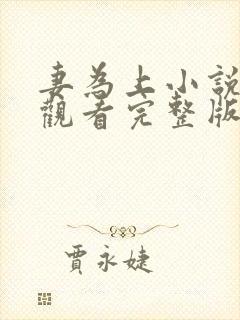 妻為上小說
觀看完整版
賈永婕